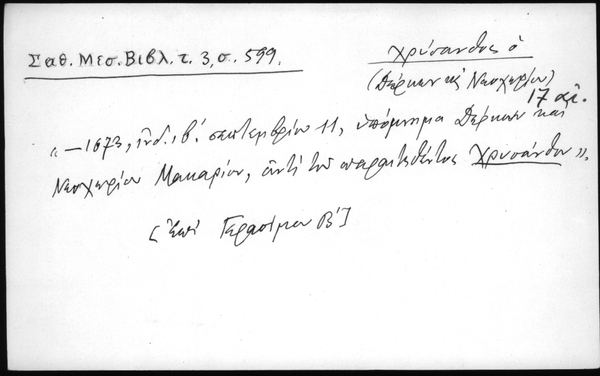 Σαθ. Μεσ. Βιβλ. τ. 3, σ. 599.
Χρύσανθος ὁ
(Δέρκων κ̀ Νεοχωρίου)
17 αἰ.
«—1673, ἰνδ. ιβ΄. σεπτεμβρίου 11, ὑπόμνημα Δέρκων καὶ
Νεοχωρίου Μακαρίου, ἀντὶ τοῦ παραιτηθέντος Χρυσάνθου».
[Ἐπὶ Γερασίμου Β΄]